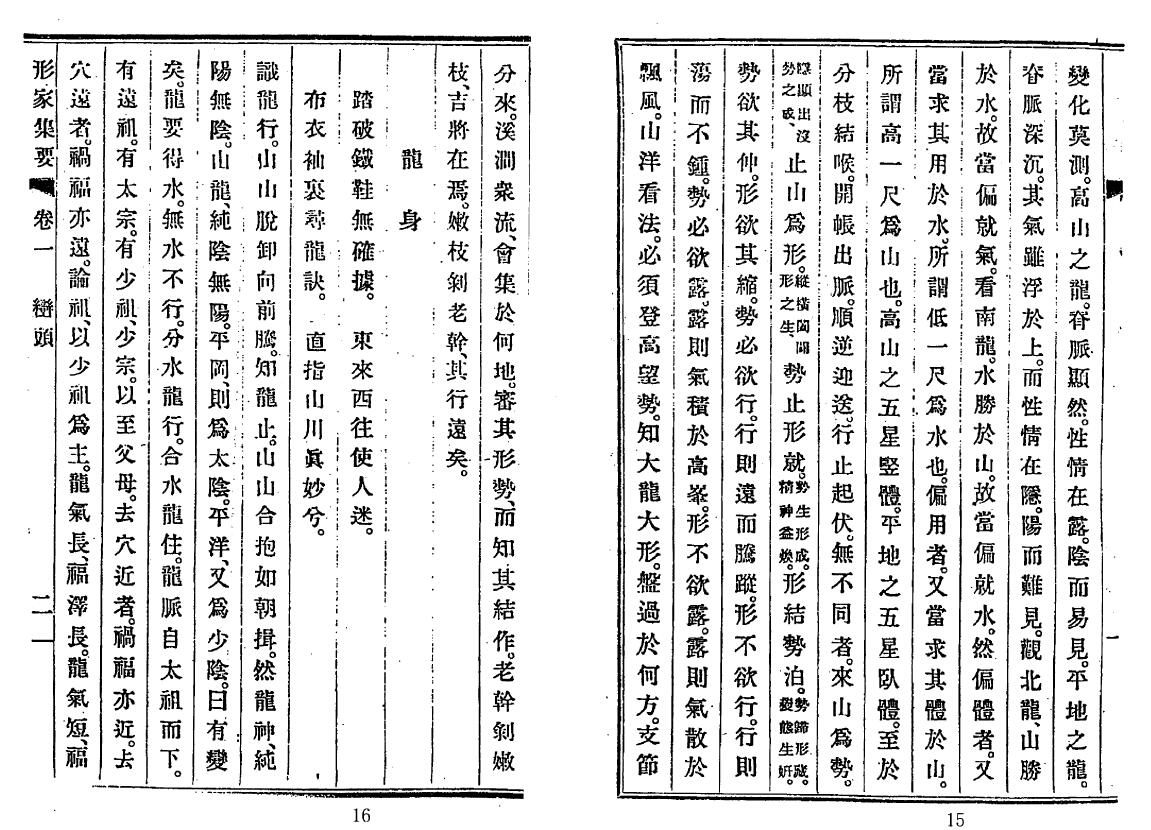 變化莫測。高山之龍。脊脈顯然。性情在露。陰而易見。平地之龍。
脊脈深沉。其氣雖浮於上。而性情在隱。陽而難見。觀北龍、山勝
於水。故當偏就氣。看南龍。水勝於山。故當偏就水。然偏體者。又
當求其用於水。所謂低一尺爲水也。偏用者。又當求其體於山。
所謂高一尺爲山也。高山之五星豎體。平地之五星臥體。至於
分枝結喉。開帳出脈。順逆迎送。行止起伏。無不同者。來山爲勢。
隱顯出沒勢之成、止山爲形。縱橫闔闢形之生、勢止形就。勢生形成。精神益煥。形結勢泊。勢歸形藏。變態生妍。
勢欲其伸。形欲其縮。勢必欲行。行則遠而騰蹤。形不欲行。行則
蕩而不鍾。勢必欲露。露則氣積於高峯。形不欲露。露則氣散於
飄風。山洋看法。必須登高望勢。知大龍大形。盤過於何方。支節
15
分來。溪澗衆流、會集於何地。審其形勢、而知其結作。老幹剝嫩
枝、吉將在焉。嫩枝剝老幹、其行遠矣。
龍身
踏破鐵鞋無確據。東來西往使人迷。
布衣袖裏尋龍訣。直指山川眞妙兮。
識龍行。山山脫卸向前騰。知龍止。山山合抱如朝揖。然龍神、純
陽無陰。山龍、純陰無陽。平岡、則爲太陰。平洋、又爲少陰。曰有變
矣。龍要得水。無水不行。分水龍行。合水龍住。龍脈自太祖而下。
有遠祖。有太宗。有少祖、少宗。以至父母。去穴近者。禍福亦近。去
穴遠者。禍福亦遠。論祖、以少祖爲主。龍氣長、福澤長。龍氣短、福
形家集要 卷一 巒頭 二一
16